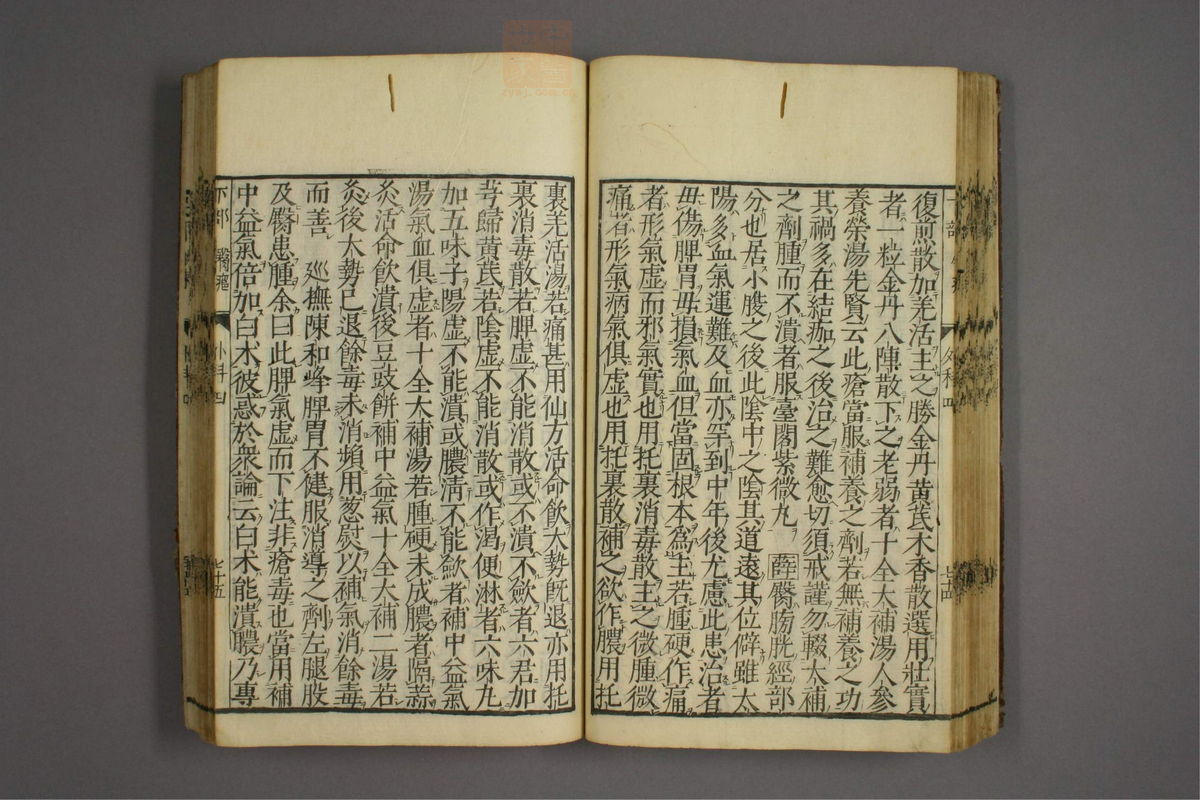 復煎散加羌活主之勝金丹黃芪木香散選用壯實
者一粒金丹八陣散下之老弱者十全大補湯人參
養榮湯先賢云此瘡當服補養之劑若無補養之功
其禍多在結痂之後治之難愈切須戒謹勿輟大補
之劑腫而不潰者服臺閣紫微丸 薛臀膀胱經部
分也居小腹之後此陰中之陰其道遠其位僻雖太
陽多血氣運難及血亦罕到中年後尤慮此患治者
毋傷脾胃毋損氣血但當固根本為主若腫硬作痛
者形氣虛而邪氣實也用托裏消毒散主之微腫微
痛者形氣病氣俱虛也用托裏散補之欲作膿用托
裏羌活湯若痛甚用仙方活命飲大勢既退亦用托
裏消毒散若脾虛不能消散或不潰不斂者六君加
芎歸黃芪若陰虛不能消散或作渴便淋者六味丸
加五味子陽虛不能潰或膿清不能斂者補中益氣
湯氣血俱虛者十全大補湯若腫硬未成膿者隔蒜
灸活命飲潰後豆豉餅補中益氣十全大補二湯若
灸後大勢已退餘毒未消頻用葱熨以補氣消餘毒
而善 巡撫陳和峰脾胃不健服消導之劑左腿股
及臀患腫余曰此脾氣虛而下注非瘡毒也當用補
中益氣倍加白术彼惑於衆論云白术能潰膿乃專
下部 外科四 七十五
外科四 七十四